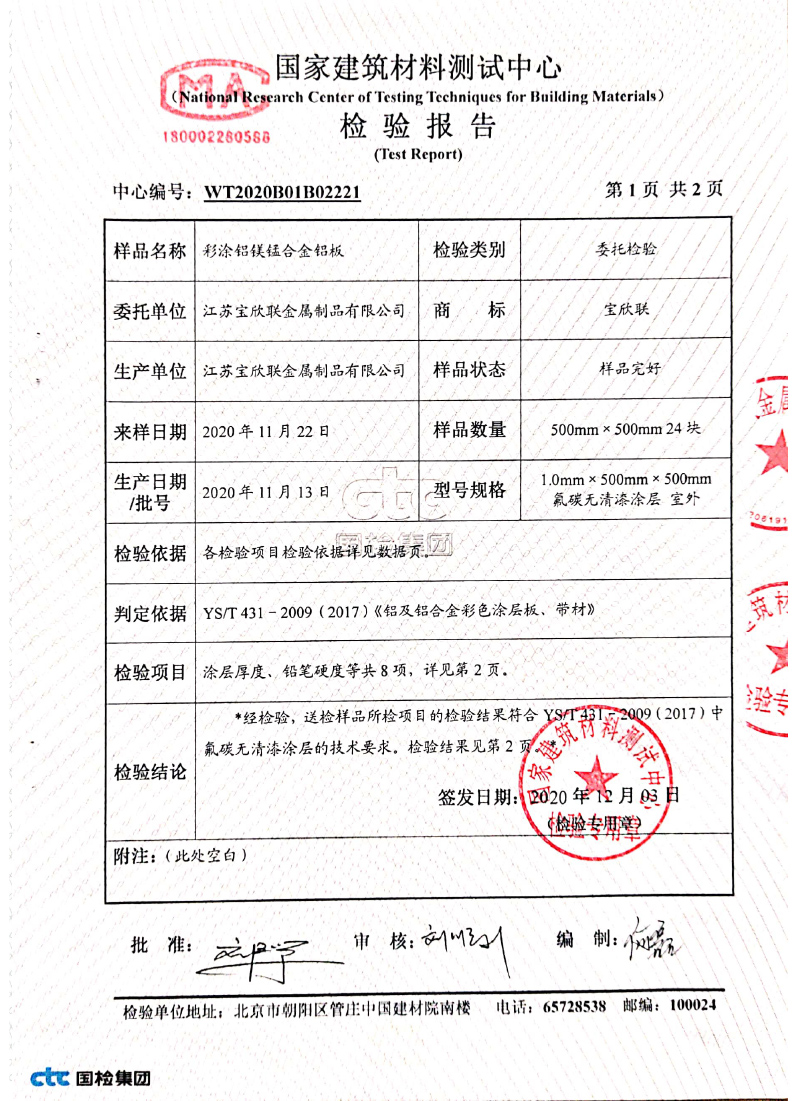 国家建筑材料测试中心
MA
（National Research Center of Testing Techniques for Building Materials）
180002280588
检验报告
(Test Report)
中心编号：WT2020B01B02221
第 1 页 共 2 页
样品名称 彩涂铝镁锰合金铝板 检验类别 委托检验
委托单位 江苏宝欣联金属制品有限公司 商 标 宝欣联
生产单位 江苏宝欣联金属制品有限公司 样品状态 样品完好
来样日期 2020 年 11 月 22 日 样品数量 500mm × 500mm 24 块
生产日期
/批号
2020 年 11 月 13 日
型号规格
1.0mm × 500mm × 500mm
氟碳无清漆涂层 室外
ctc
国检集团
检验依据 各检验项目检验依据详见数据页。
判定依据 YS/T 431－2009（2017）《铝及铝合金彩色涂层板、带材》
检验项目 涂层厚度、铅笔硬度等共 8 项，详见第 2 页。
检验结论
*经检验，送检样品所检项目的检验结果符合 YS/T 431－2009（2017）中
氟碳无清漆涂层的技术要求。检验结果见第 2 页。*
签发日期：2020 年 12 月 03 日
（检验专用章）
国家建筑材料测试中心
检验专用章
附注：（此处空白）
金属
筑材
检验专
批 准：
审 核：
编 制：
检验单位地址：北京市朝阳区管庄中国建材院南楼 电话：65728538 邮编：100024
ctc 国检集团